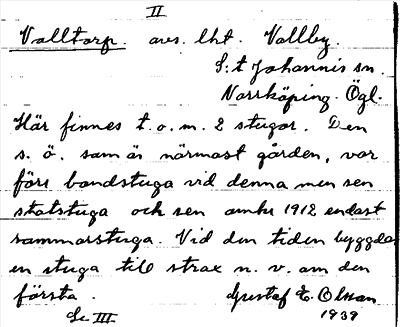 II
Valltorp. avs. lht. Vallby.
S:t Johannis sn.
Norrköping. Ögl.
Här finnes t.o.m. 2 stugor. Den
s. ö. som är närmast gården, var
förr bondstuga vid denna men sen
statstuga och sen omkr 1912 endast
sommarstuga. Vid den tiden byggdes
en stuga till strax n. v. om den
första. Gustaf E. Olsson
Se III. 1939